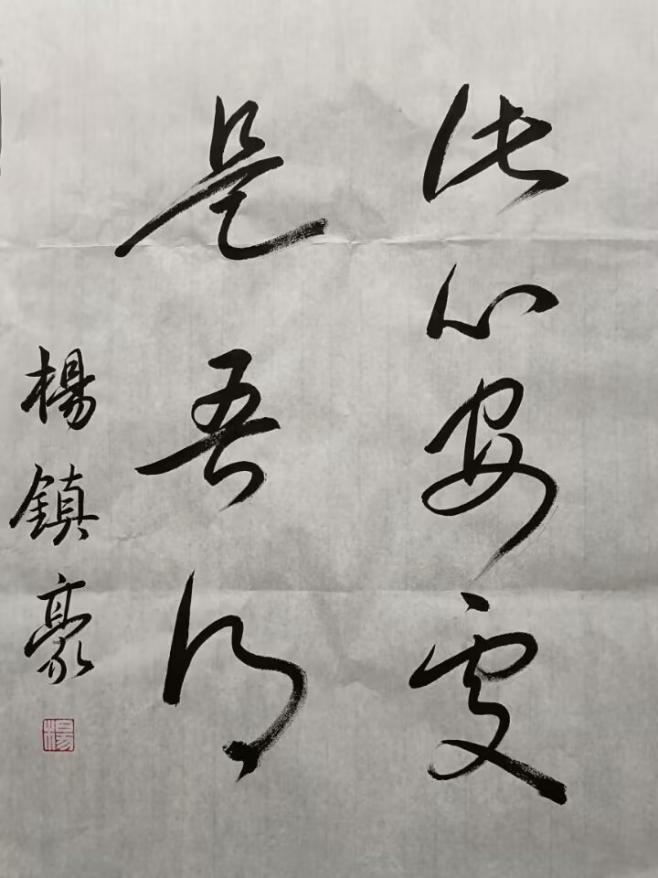 此心安處
是吾鄉
楊鎮豪
楊